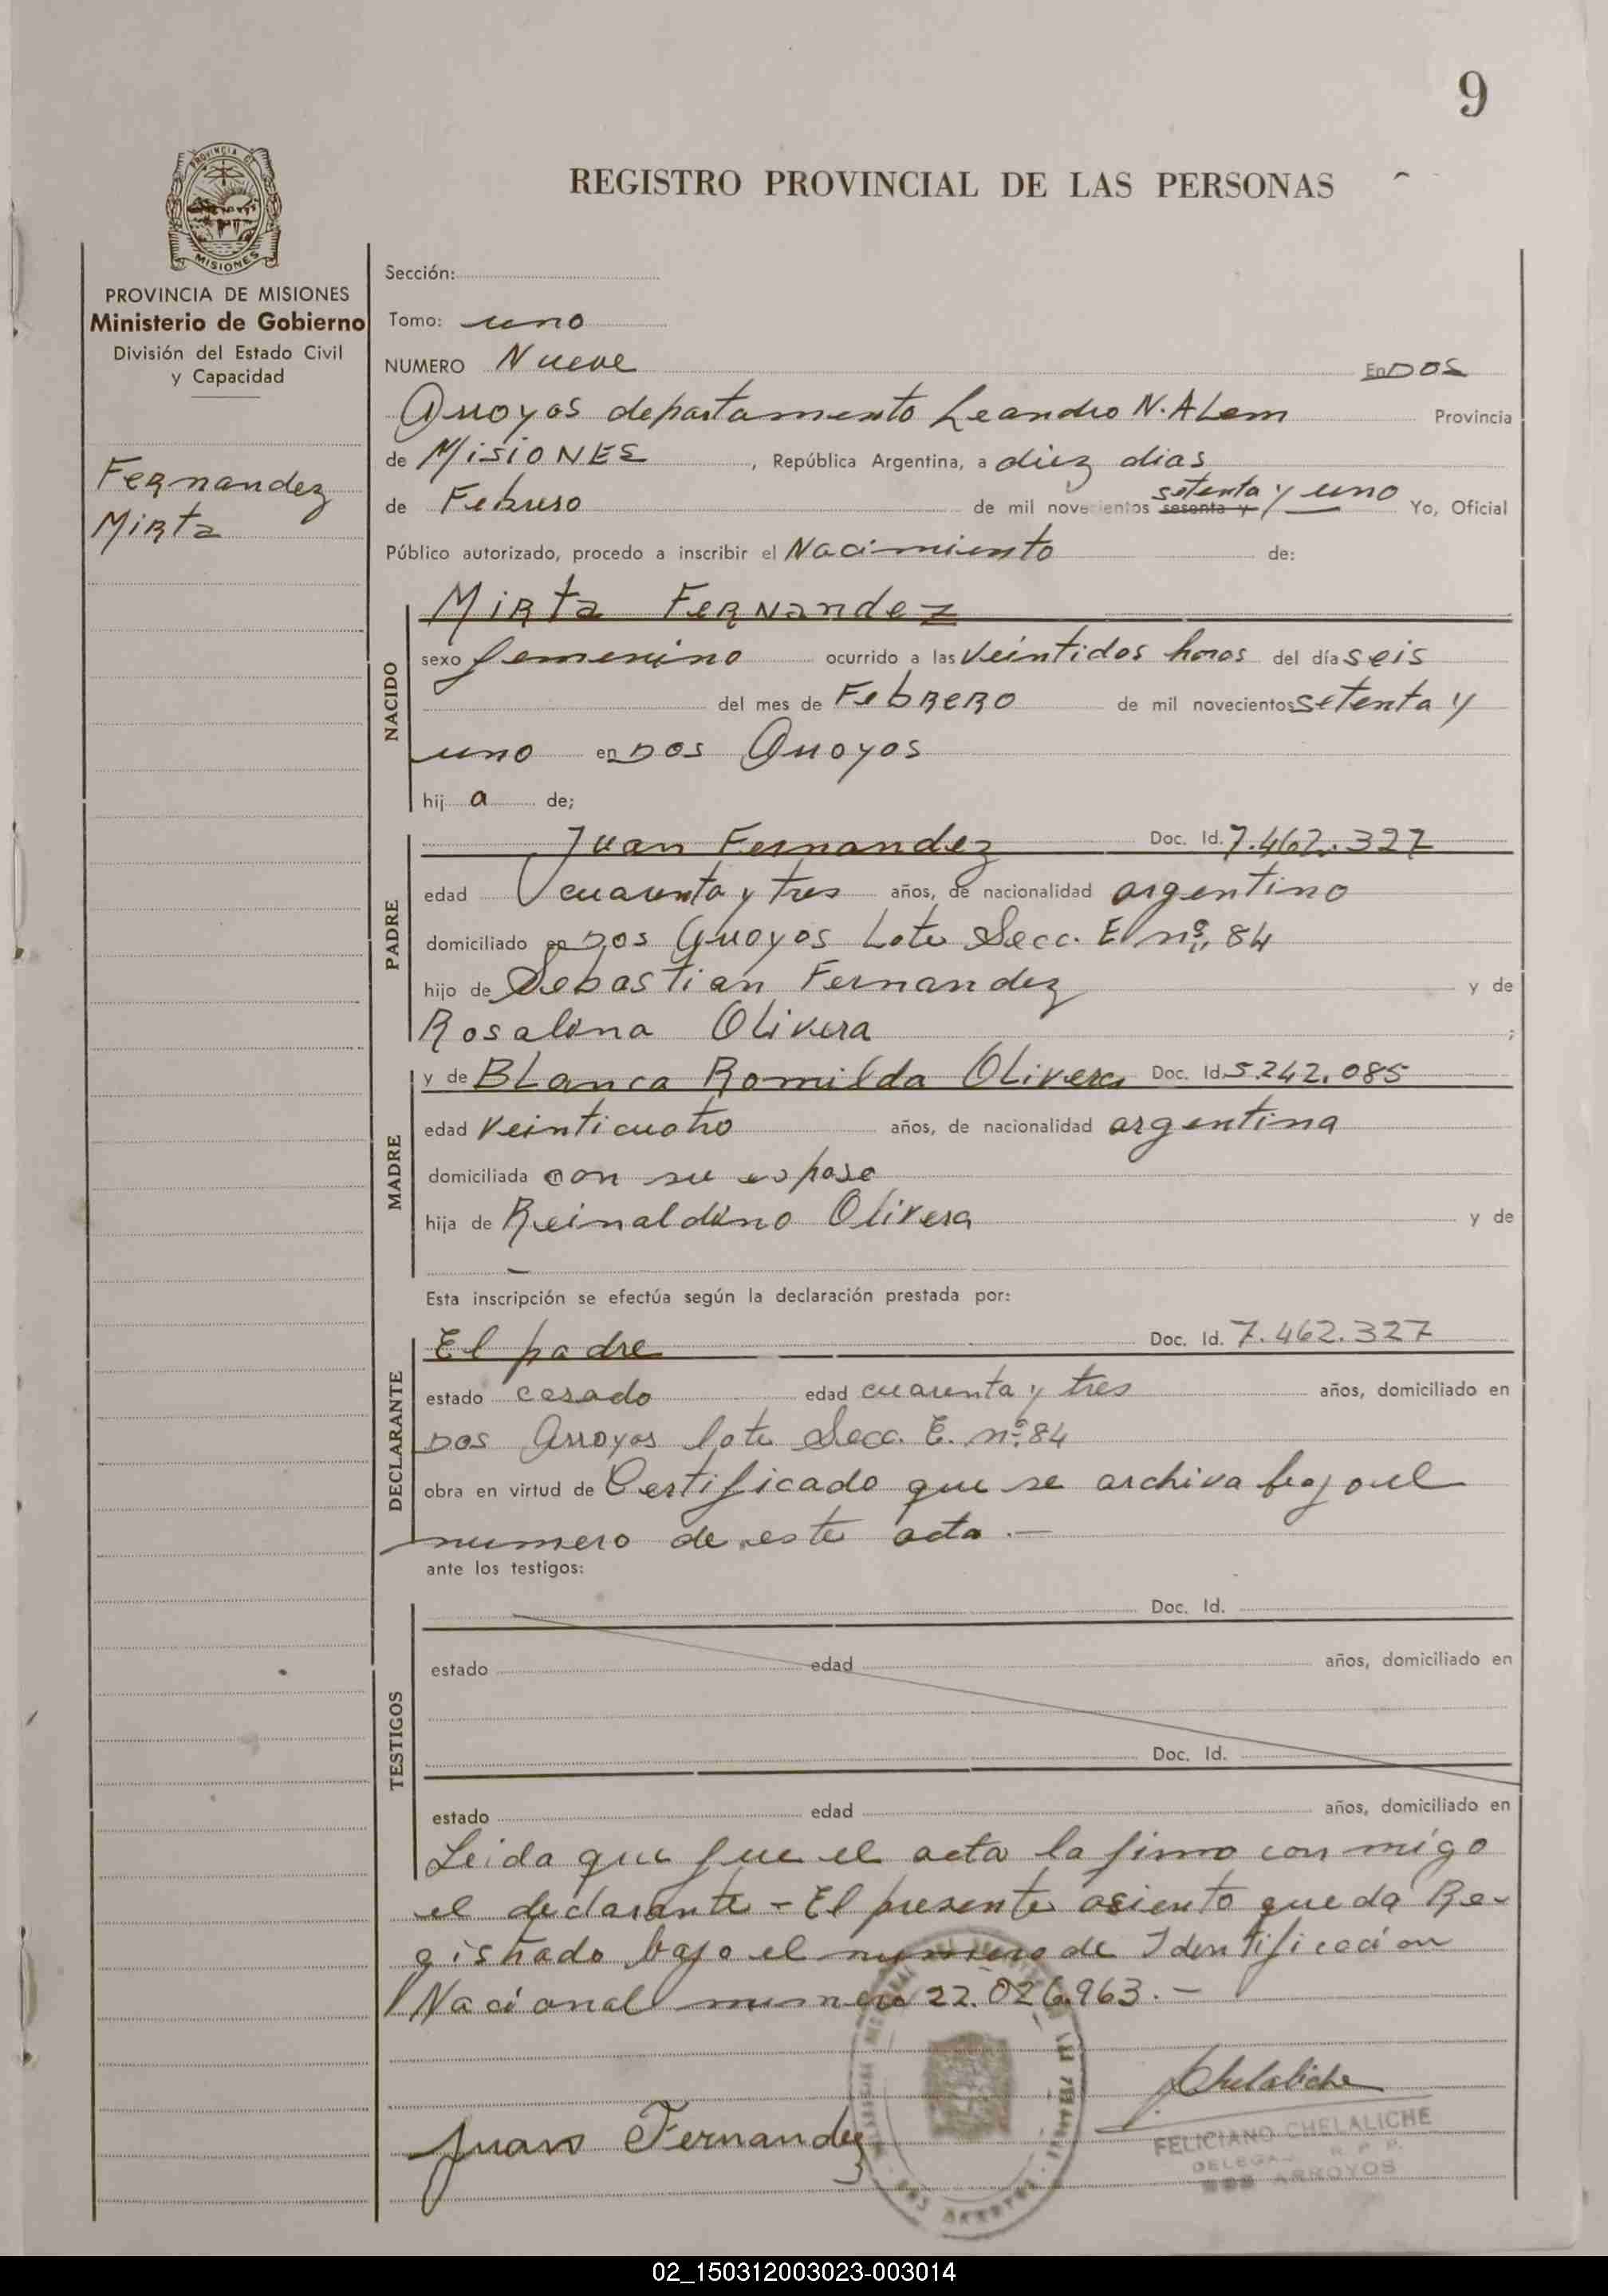 9
PROVINCIA DE
MISIONES
REGISTRO PROVINCIAL DE LAS PERSONAS
PROVINCIA DE MISIONES
Ministerio de Gobierno
División del Estado Civil
y Capacidad
Fernandez
Mirta
Sección:
Tomo: uno
NUMERO Nueve En DOS
Arroyos departamento Leandro N. ALem Provincia
de MISIONES, República Argentina, a diez dias
de Febrero de mil novecientos sesenta y setenta y uno Yo, Oficial
Público autorizado, procedo a inscribir el Nacimiento de:
NACIDO
Mirta Fernandez
sexo femenino ocurrido a las veintidos horas del día seis
del mes de Febrero de mil novecientos setenta y
uno en DOS Arroyos
hij a de;
PADRE
Juan Fernandez Doc. Id. 7.462.327
edad cuarenta y tres años, de nacionalidad argentino
domiciliado en DOS Arroyos Lote Secc. E nº 84
hijo de Sebastian Fernandez y de
Rosalina Olivera ;
MADRE
y de BLanca Romilda Olivera Doc. Id. 5.242.085
edad veinticuatro años, de nacionalidad argentina
domiciliada con su esposo
hija de Reinaldino Olivera y de
Esta inscripción se efectúa según la declaración prestada por:
DECLARANTE
El padre Doc. Id. 7.462.327
estado casado edad cuarenta y tres años, domiciliado en
DOS Arroyos lote Secc. E. nº 84
obra en virtud de Certificado que se archiva bajo el
numero de este acta.-
ante los testigos:
TESTIGOS
Doc. Id.
estado edad años, domiciliado en
Doc. Id.
estado edad años, domiciliado en
Leida que fue el acta la firmo con migo
el declarante - El presente asiento queda Re-
gistrado bajo el numero de Identificacion
Nacional numero 22.026.963.-
Chelaliche
Juan Fernandez
FELICIANO CHELALICHE
R. P. P.
DOS ARROYOS
DOS ARROYOS
02_150312003023-003014